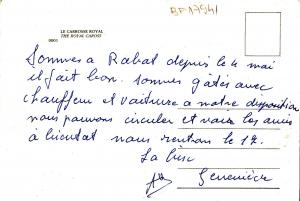 BF17541
LE CARROSSE ROYAL
THE ROYAL CAROSS
0001
Sommes a Rabat depuis le 4 mai
il fait bon. sommes gâtés avec
chauffeur et voiture a notre disposition
nous pouvons circuler et voir les amis
à nous rentron le 17.
La bise
Geneviève